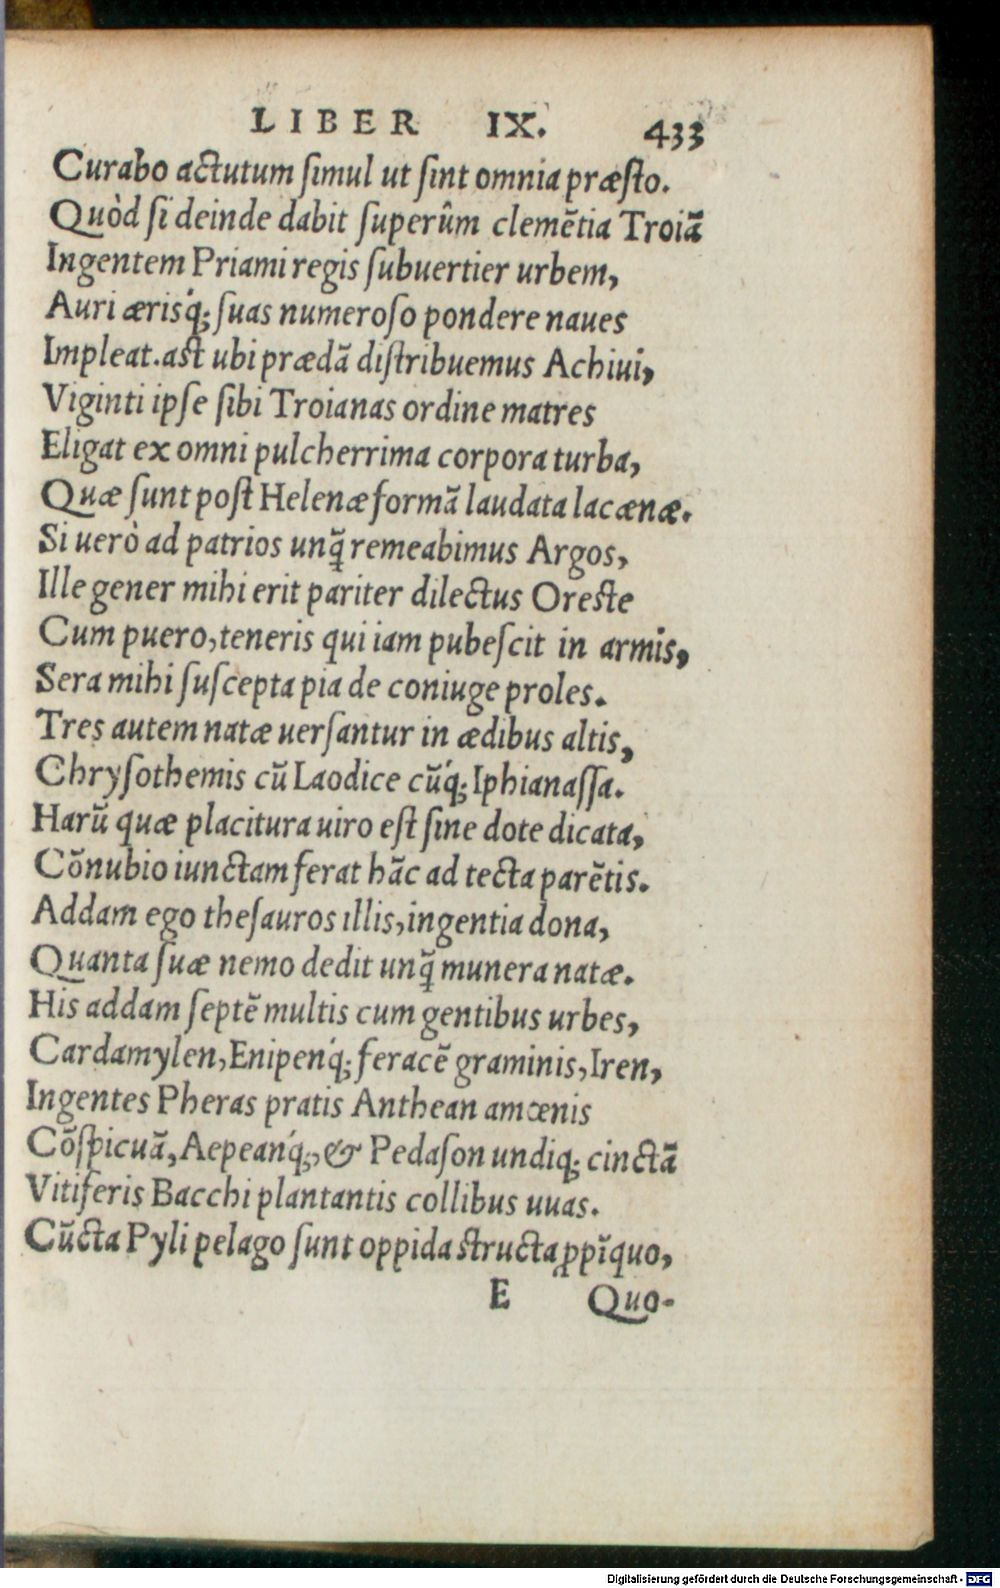 LIBER IX. 433
Curabo actutum ſimul ut ſint omnia præſto.
Quòd ſi deinde dabit ſuperûm clemẽtia Troiã
Ingentem Priami regis ſubuertier urbem,
Auri ærisq́; ſuas numeroſo pondere naues
Impleat. aſt ubi prædã diſtribuemus Achiui,
Viginti ipſe ſibi Troianas ordine matres
Eligat ex omni pulcherrima corpora turba,
Quæ ſunt poſt Helenæ formã laudata lacænæ.
Si uerò ad patrios unq̃ remeabimus Argos,
Ille gener mihi erit pariter dilectus Oreſte
Cum puero, teneris qui iam pubeſcit in armis,
Sera mihi ſuſcepta pia de coniuge proles.
Tres autem natæ uerſantur in ædibus altis,
Chryſothemis cũ Laodice cũq́; Iphianaſſa.
Harũ quæ placitura uiro eſt ſine dote dicata,
Cõnubio iunctam ferat hãc ad tecta parẽtis.
Addam ego theſauros illis, ingentia dona,
Quanta ſuæ nemo dedit unq̃ munera natæ.
His addam ſeptẽ multis cum gentibus urbes,
Cardamylen, Enipenq́; feracẽ graminis, Iren,
Ingentes Pheras pratis Anthean amœnis
Cõſpicuã, Aepeanq́;, & Pedaſon undiq; cinctã
Vitiferis Bacchi plantantis collibus uuas.
Cũcta Pyli pelago ſunt oppida ſtructa ꝓpĩquo,
E Quo-
Digitalisierung gefördert durch die Deutsche Forschungsgemeinschaft - DFG